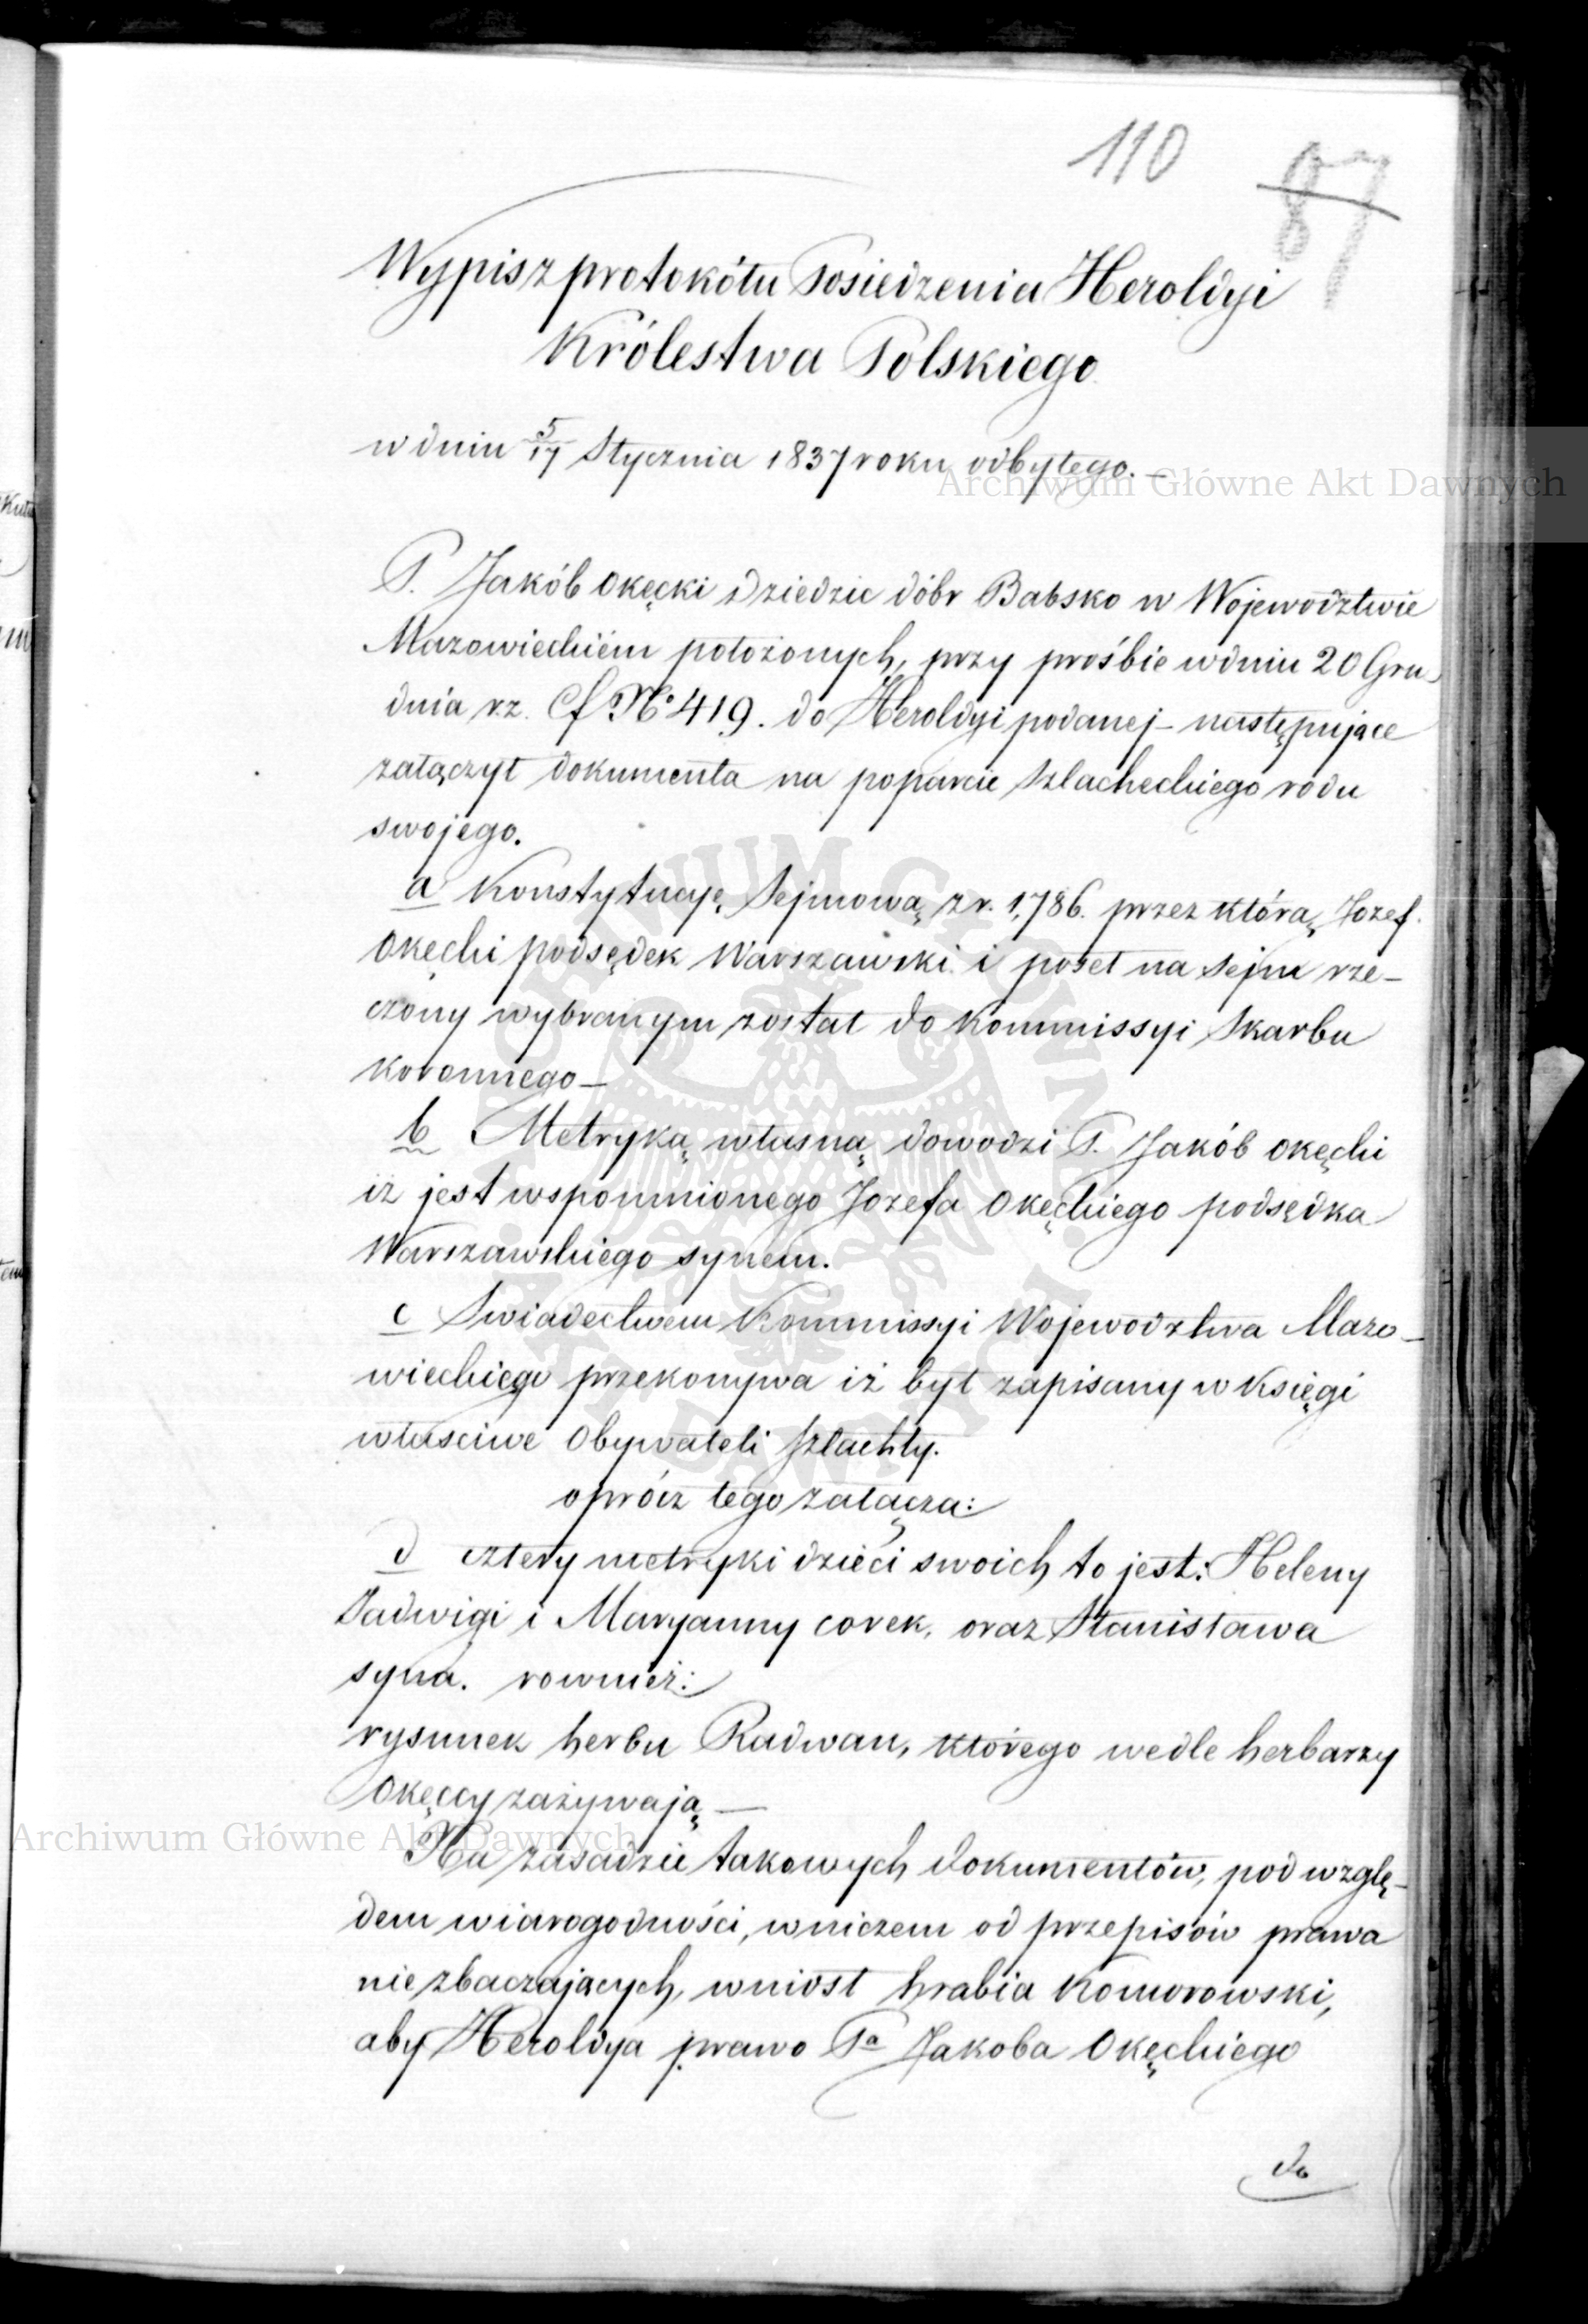 110
87
Wypis z protokółu Posiedzenia Heroldyi
Królestwa Polskiego
w dniu 5/17 Stycznia 1837 roku odbytego. —
Archiwum Główne Akt Dawnych
P. Jakób Okęcki dziedzic dóbr Babsko w Wojewodztwie
Mazowieckiém położonych, przy prośbie w dniu 20 Gru-
dnia r. z. Cf No 419. do Heroldyi podanej – następujące
załączył dokumenta na poparcie szlacheckiego rodu
swojego.
a Konstytucyę Sejmową z r. 1,786. przez którą Jozef.
Okęcki podsędek Warszawski i poseł na Sejm rze-
czony wybranym został do Kommissyi Skarbu
Koronnego —
b Metryką własną dowodzi P. Jakób Okęcki
iż jest wspomnionego Jozefa Okęckiego podsędka
Warszawskiego synem.
c Swiadectwem Kommissyi Wojewodztwa Mazo-
wieckiego przekonywa iż był zapisany w Księgi
własciwe Obywateli szlachty.
oprócz tego załącza:
d cztery metryki dzieci swoich to jest: Heleny
Jadwigi i Maryanny corek, oraz Stanisława
syna. rownież:
rysunek herbu Radwan, którego wedle herbarzy
Okęccy zażywają —
Archiwum Główne Akt Dawnych
Na zasadzie takowych dokumentów, pod wzglę-
dem wiarogodności, w niczem od przepisów prawa
nie zbaczających, wniósł hrabia Komorowski,
aby Heroldya prawo Pa Jakoba Okęckiego
do
ARCHIWUM GŁÓWNE
AKT DAWNYCH